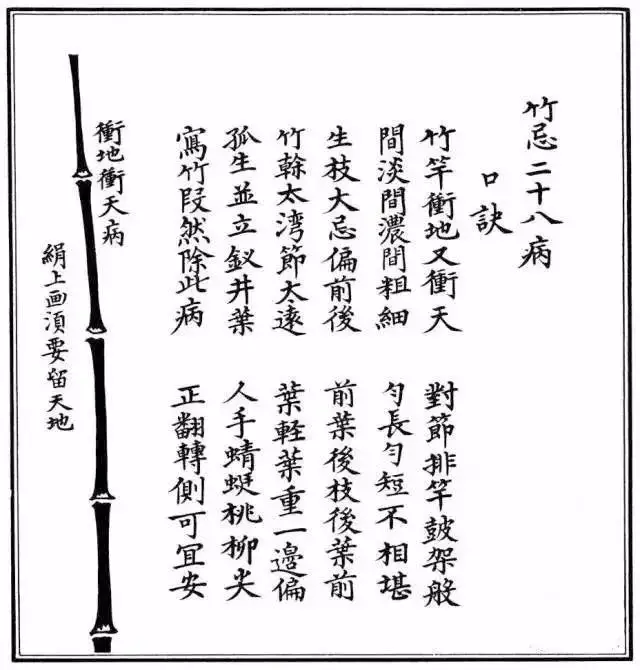 竹忌二十八病
口訣
竹竿衝地又衝天 對節排竿鼓架般
間淡間濃間粗細 勻長勻短不相堪
生枝大忌偏前後 前葉後枝後葉前
竹榦太湾節太遠 葉軽葉重一邊偏
孤生並立釵井葉 人手蜻蜓桃柳尖
寫竹叚然除此病 正翻轉側可宜安
衝地衝天病
絹上画湏要留天地